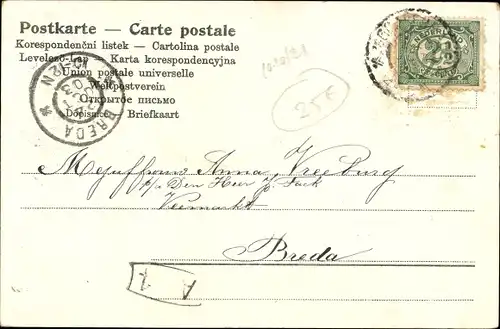 Postkarte – Carte postale
Korespondenční listek – Cartolina postale
Levelező-Lap – Karta korespondencyjna
Union postale universelle
Weltpostverein
Открытое письмо
Dopisnice Briefkaart
BREDA
2½
25€
Mejuffrouw Anna Vreeburg
p/a Den Heer
Veemarkt
Breda
A
1